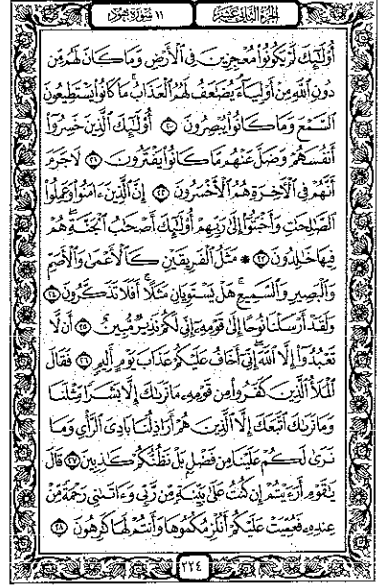 الجزء الثاني عشر
١١ سورة هود
أُوْلَـٰٓئِكَ لَمْ يَكُونُواْ مُعْجِزِينَ فِى ٱلْأَرْضِ وَمَا كَانَ لَهُم مِّن
دُونِ ٱللَّهِ مِنْ أَوْلِيَآءَ يُضَـٰعَفُ لَهُمُ ٱلْعَذَابُ مَا كَانُواْ يَسْتَطِيعُونَ
ٱلسَّمْعَ وَمَا كَانُواْ يُبْصِرُونَ ٢٠ أُوْلَـٰٓئِكَ ٱلَّذِينَ خَسِرُوٓاْ
أَنفُسَهُمْ وَضَلَّ عَنْهُم مَّا كَانُواْ يَفْتَرُونَ ٢١ لَا جَرَمَ
أَنَّهُمْ فِى ٱلْأَخِرَةِ هُمُ ٱلْأَخْسَرُونَ ٢٢ إِنَّ ٱلَّذِينَ ءَامَنُواْ وَعَمِلُواْ
ٱلصَّـٰلِحَـٰتِ وَأَخْبَتُوٓاْ إِلَىٰ رَبِّهِمْ أُوْلَـٰٓئِكَ أَصْحَـٰبُ ٱلْجَنَّةِ هُمْ
فِيهَا خَـٰلِدُونَ ٢٣ * مَثَلُ ٱلْفَرِيقَيْنِ كَٱلْأَعْمَىٰ وَٱلْأَصَمِّ
وَٱلْبَصِيرِ وَٱلسَّمِيعِ هَلْ يَسْتَوِيَانِ مَثَلًا أَفَلَا تَذَكَّرُونَ ٢٤
وَلَقَدْ أَرْسَلْنَا نُوحًا إِلَىٰ قَوْمِهِۦٓ إِنِّى لَكُمْ نَذِيرٌ مُّبِينٌ ٢٥ أَن لَّا
تَعْبُدُوٓاْ إِلَّا ٱللَّهَ إِنِّىٓ أَخَافُ عَلَيْكُمْ عَذَابَ يَوْمٍ أَلِيمٍ ٢٦ فَقَالَ
ٱلْمَلَأُ ٱلَّذِينَ كَفَرُواْ مِن قَوْمِهِۦ مَا نَرَىٰكَ إِلَّا بَشَرًا مِّثْلَنَا
وَمَا نَرَىٰكَ ٱتَّبَعَكَ إِلَّا ٱلَّذِينَ هُمْ أَرَاذِلُنَا بَادِىَ ٱلرَّأْىِ وَمَا
نَرَىٰ لَكُمْ عَلَيْنَا مِن فَضْلٍ بَلْ نَظُنُّكُمْ كَـٰذِبِينَ ٢٧ قَالَ
يَـٰقَوْمِ أَرَءَيْتُمْ إِن كُنتُ عَلَىٰ بَيِّنَةٍ مِّن رَّبِّى وَءَاتَىٰنِى رَحْمَةً مِّنْ
عِندِهِۦ فَعُمِّيَتْ عَلَيْكُمْ أَنُلْزِمُكُمُوهَا وَأَنتُمْ لَهَا كَـٰرِهُونَ ٢٨
٢٢٤